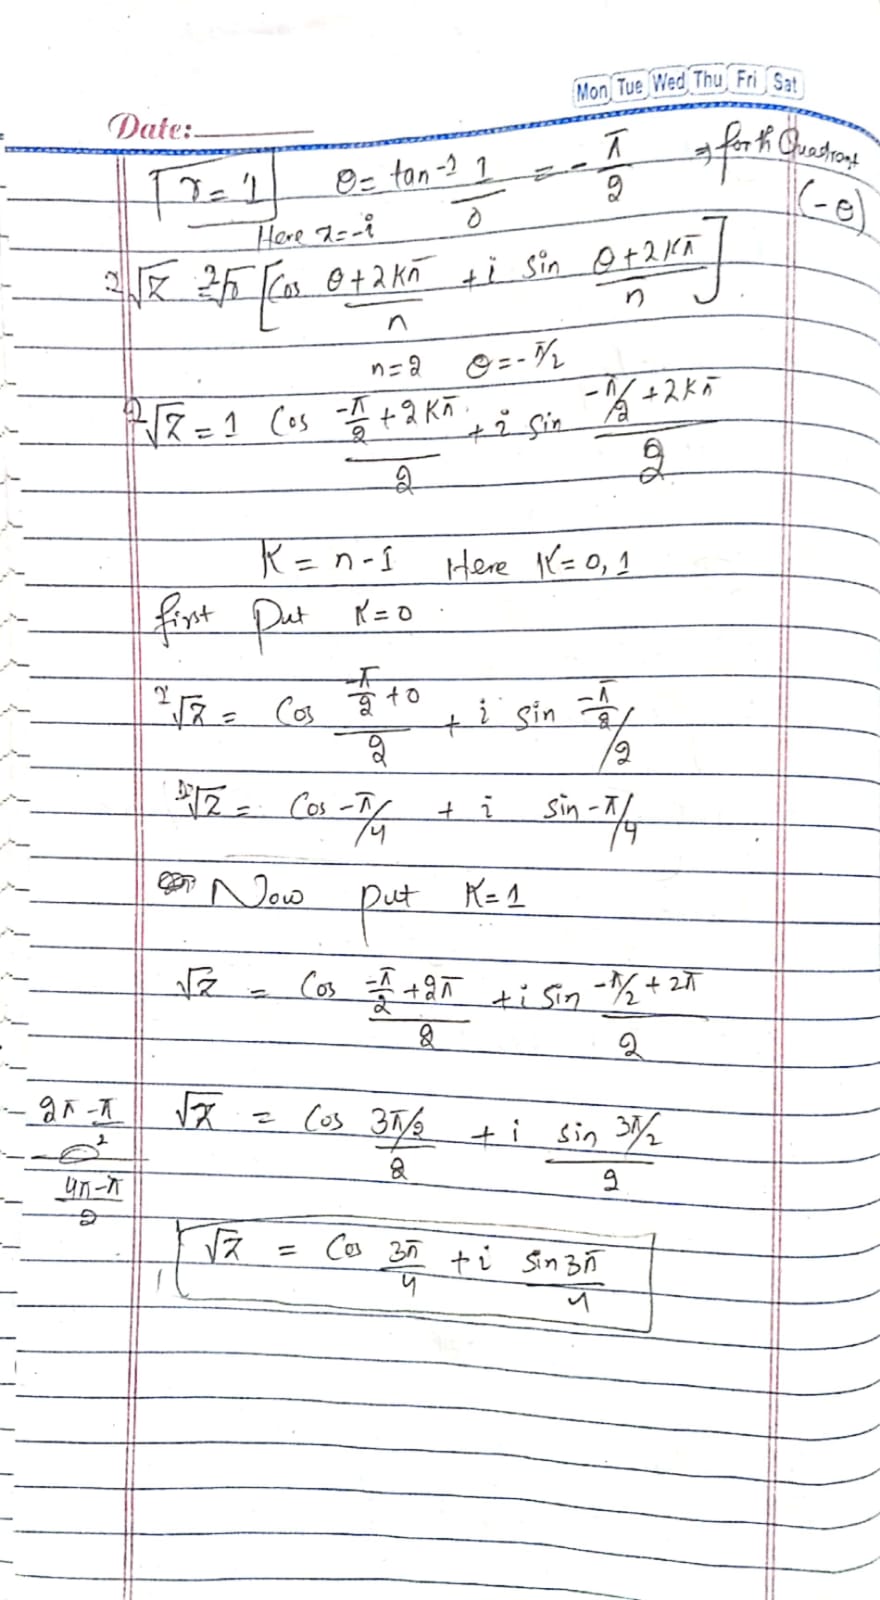 Mon Tue Wed Thu Fri Sat
Date:
r = 1 θ = tan⁻¹ 1/0 = -π/2 ⇒ forth Quadrant
(-θ)
Here z = -i
²√z = ²√r [Cos (θ+2Kπ)/n + i Sin (θ+2Kπ)/n]
n=2 θ=-π/2
²√z = 1 Cos (-π/2 + 2Kπ)/2 + i Sin (-π/2 + 2Kπ)/2
K = n-1 Here K = 0, 1
first Put K = 0
²√z = Cos (-π/2 + 0)/2 + i Sin (-π/2)/2
²√z = Cos -π/4 + i Sin -π/4
Now put K = 1
√z = Cos (-π/2 + 2π)/2 + i Sin (-π/2 + 2π)/2
2π - π/2
√z = Cos (3π/2)/2 + i (sin 3π/2)/2
(4π-π)/2
√z = Cos 3π/4 + i Sin 3π/4